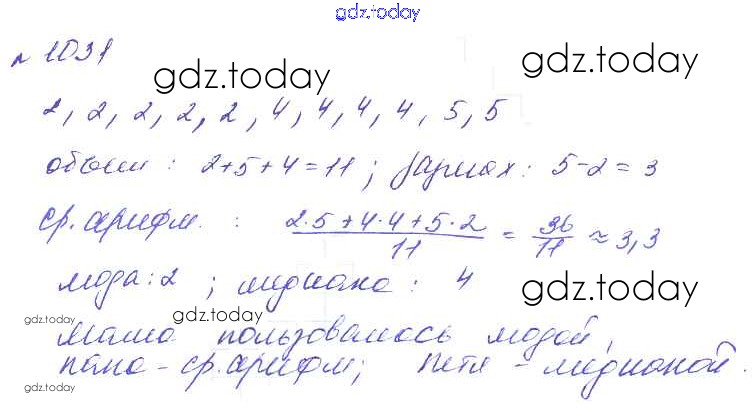 gdz.today
№ 1031
gdz.today gdz.today
2, 2, 2, 2, 2, 4, 4, 4, 4, 5, 5
объем : 2+5+4=11 ; размах : 5-2 = 3
ср. арифм. : (2·5+4·4+5·2)/11 = 36/11 ≈ 3,3
мода : 2 ; медиана : 4 gdz.today
gdz.today gdz.today
Маша пользовалась модой,
папа - ср. арифм; Петя - медианой.
gdz.today